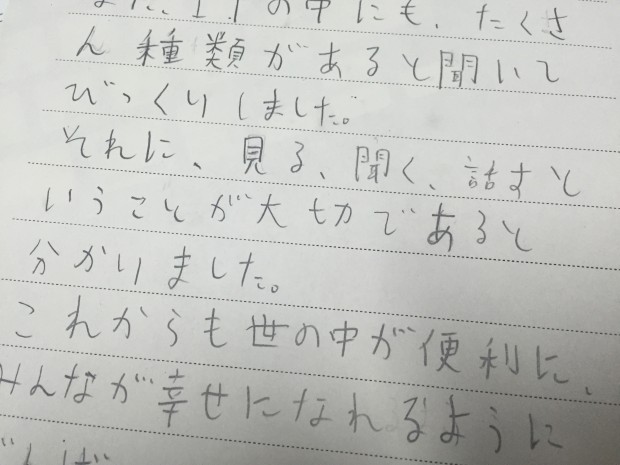 の中にも、たくさ
ん種類があると聞いて
びっくりしました。
それに、見る、聞く、話すと
いうことが大切であると
分かりました。
これからも世の中が便利に、
みんなが幸せになれるように